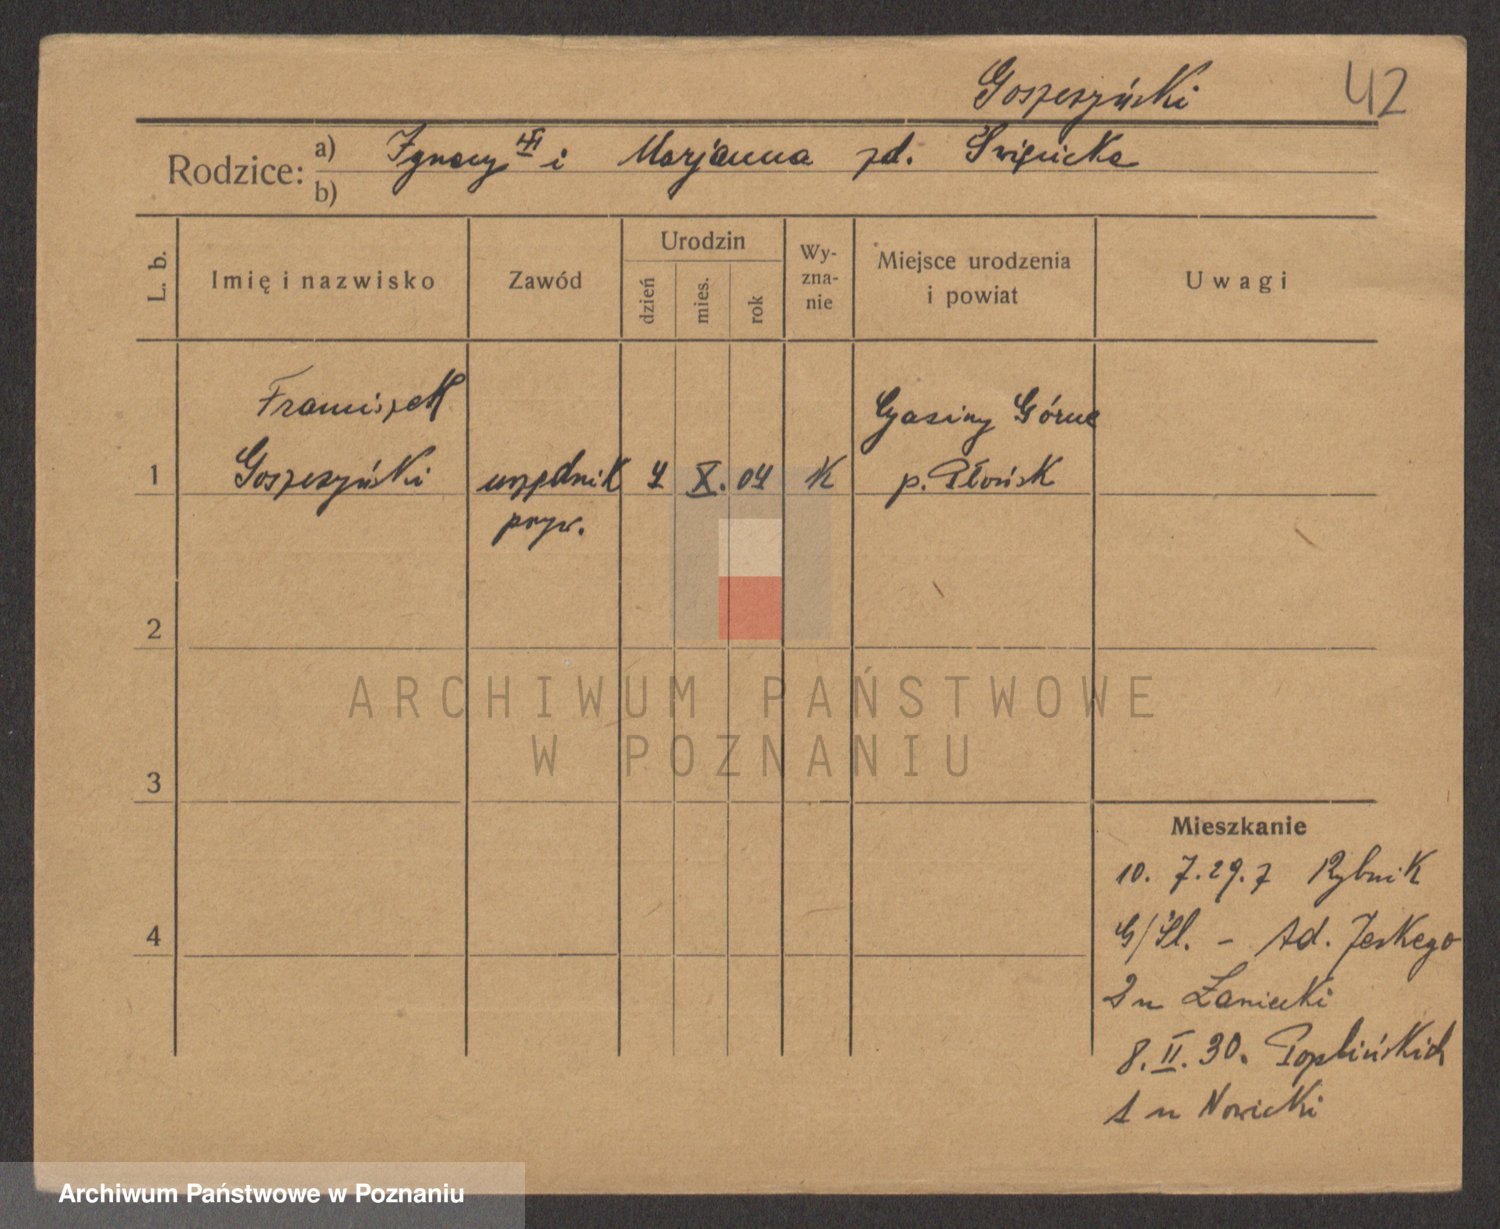 Goszeszyński 42
Rodzice: a) Ignacy i Marjanna zd. Święcicka
b)
L. b. Imię i nazwisko Zawód Urodzin dzień mies. rok Wy-zna-nie Miejsce urodzenia i powiat Uwagi
Franciszek Górne
1 Goszeszyński urzędnik 4 X. 04 K p. Płońsk
pryw.
2
ARCHIWUM PAŃSTWOWE
W POZNANIU
3
Mieszkanie
10. 7. 29. z Rybnik
4 G/Śl. - Ad. Jeskego
2 u Zaniecki
8. II. 30. Poplińskich
1 u Nowicki
Archiwum Państwowe w Poznaniu